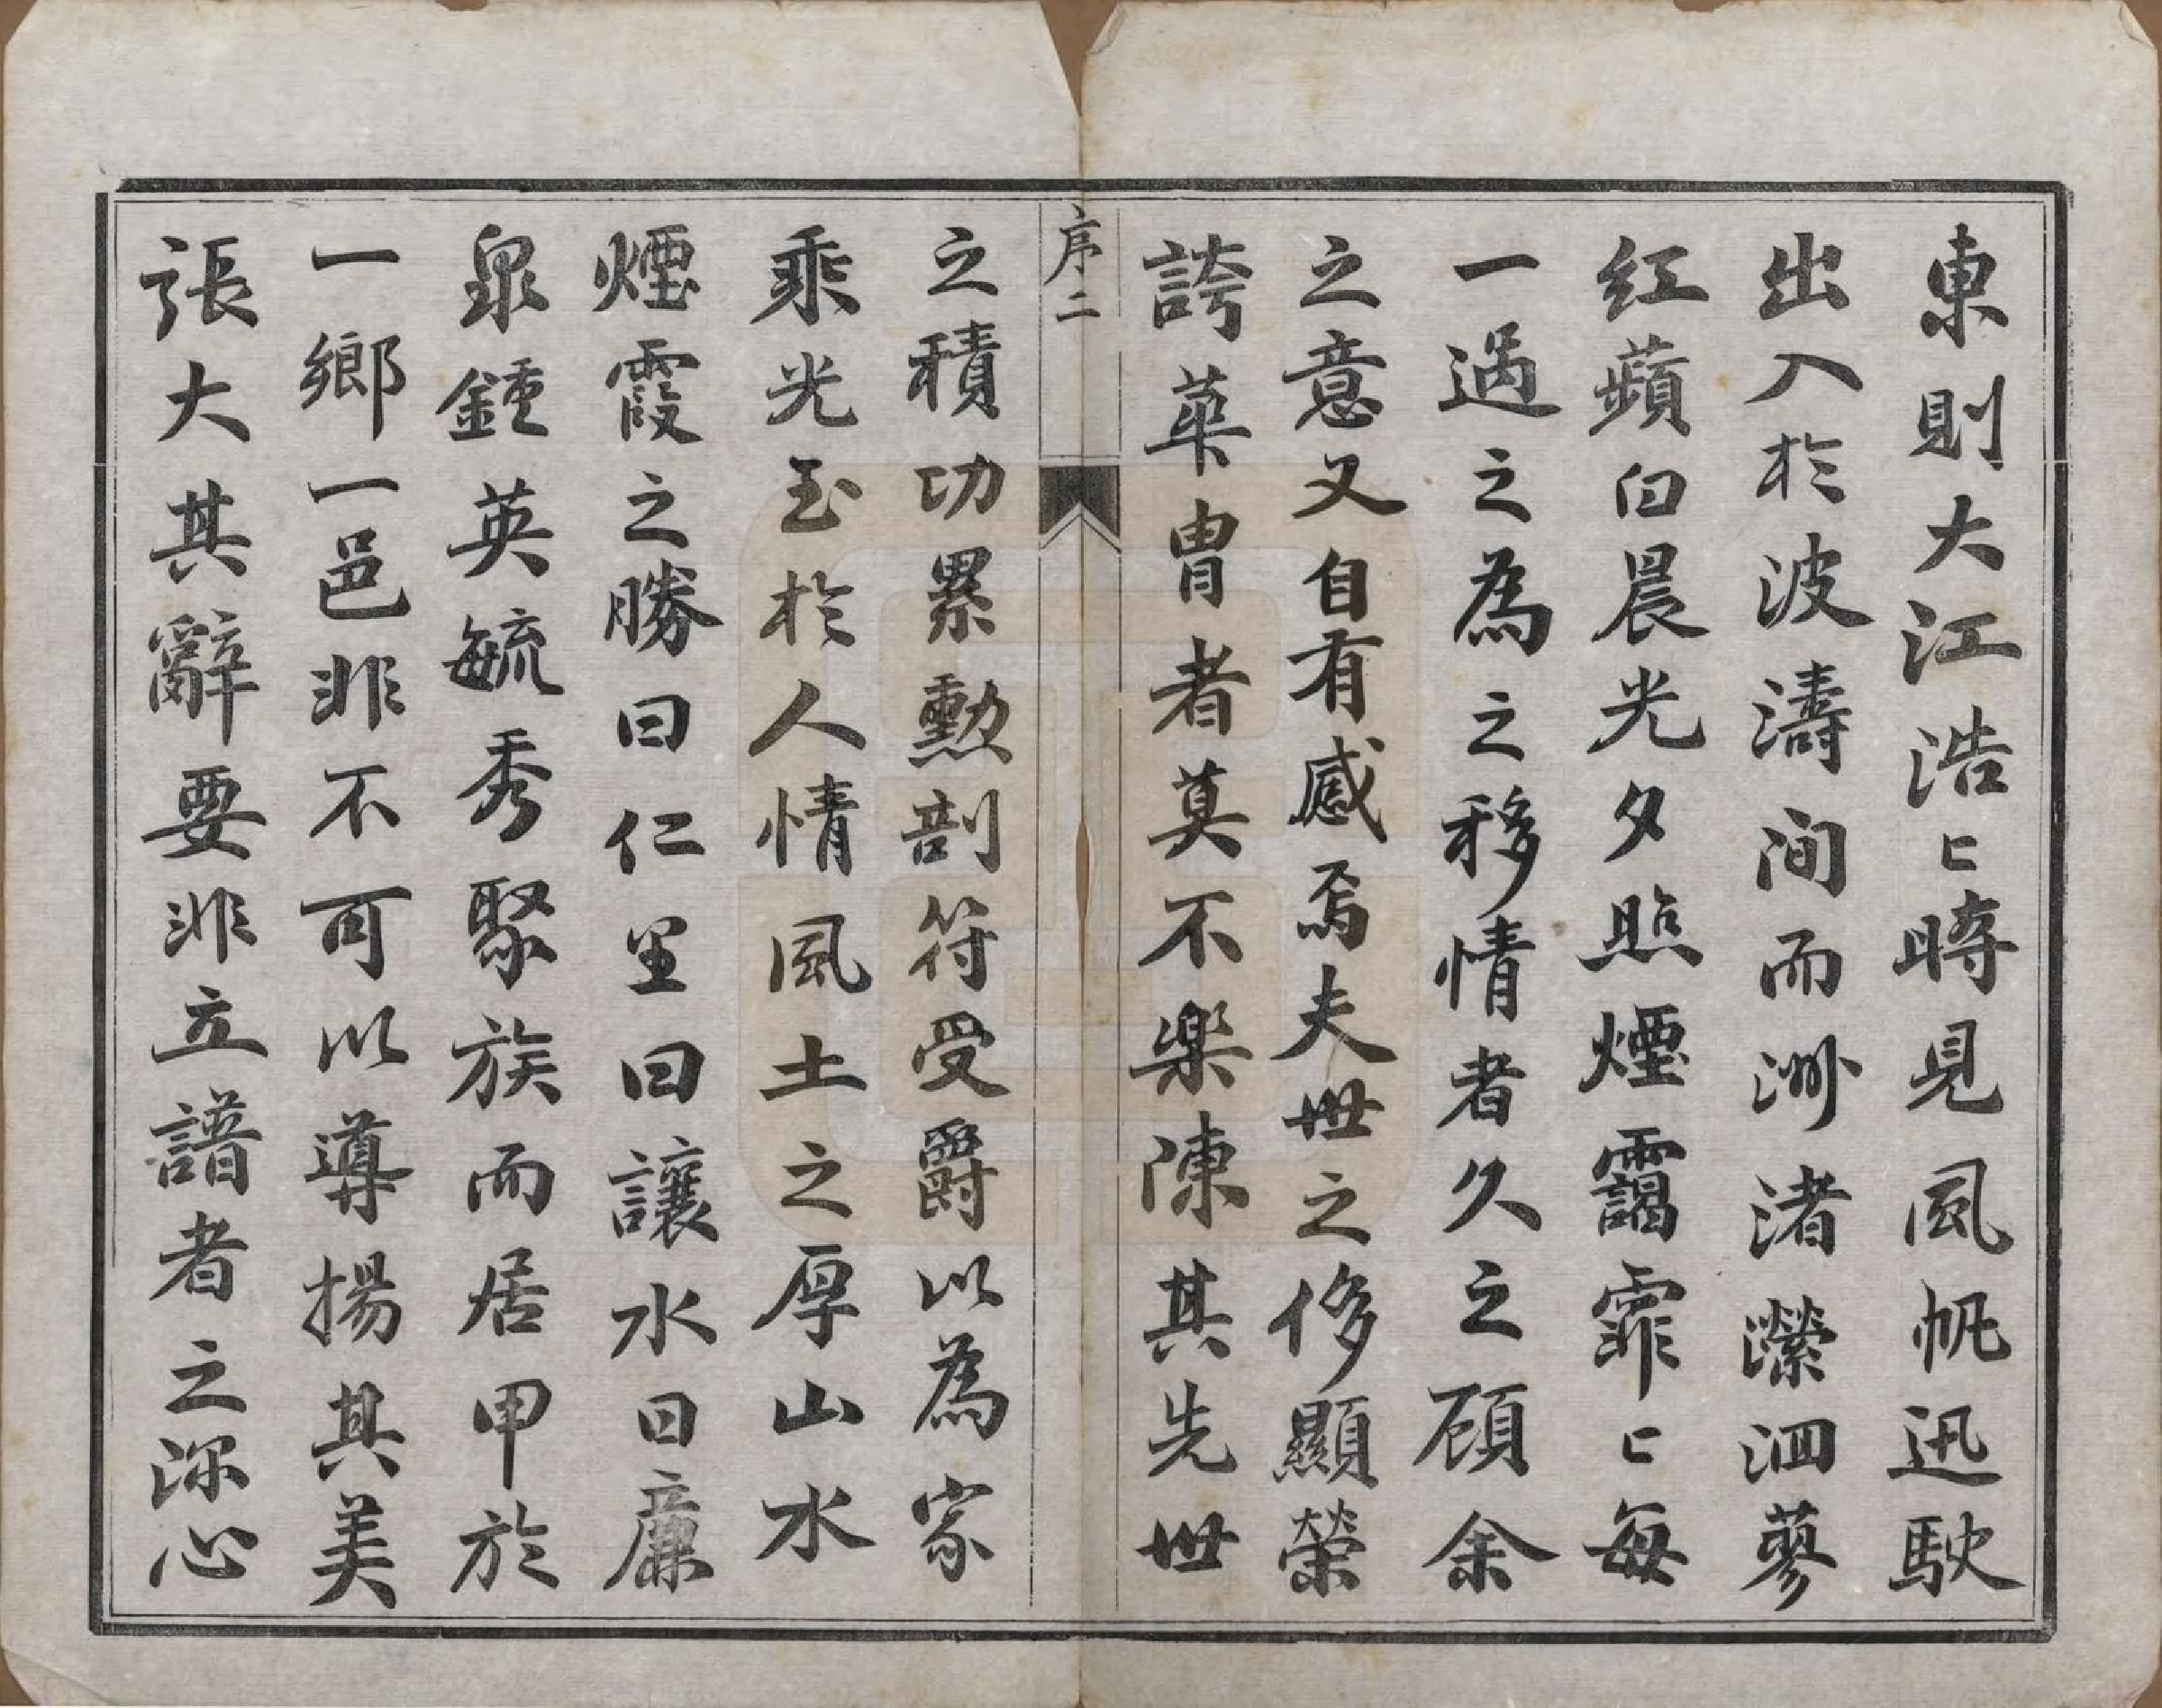 東則大江浩〻時見風帆迅駛
出入於波濤间而洲渚瀠洄蓼
红蘋白晨光夕照煙靄霏〻每
一過之為之移情者久之顾余
之意又自有感焉夫世之侈顯榮
誇華胄者莫不樂陳其先世
序二
之積功累勳剖符受爵以為家
乘光至於人情風土之厚山水
煙霞之勝曰仁里曰讓水曰廉
泉鍾英毓秀聚族而居甲於
一鄉一邑非不可以導揚其美
張大其辭要非立譜者之深心